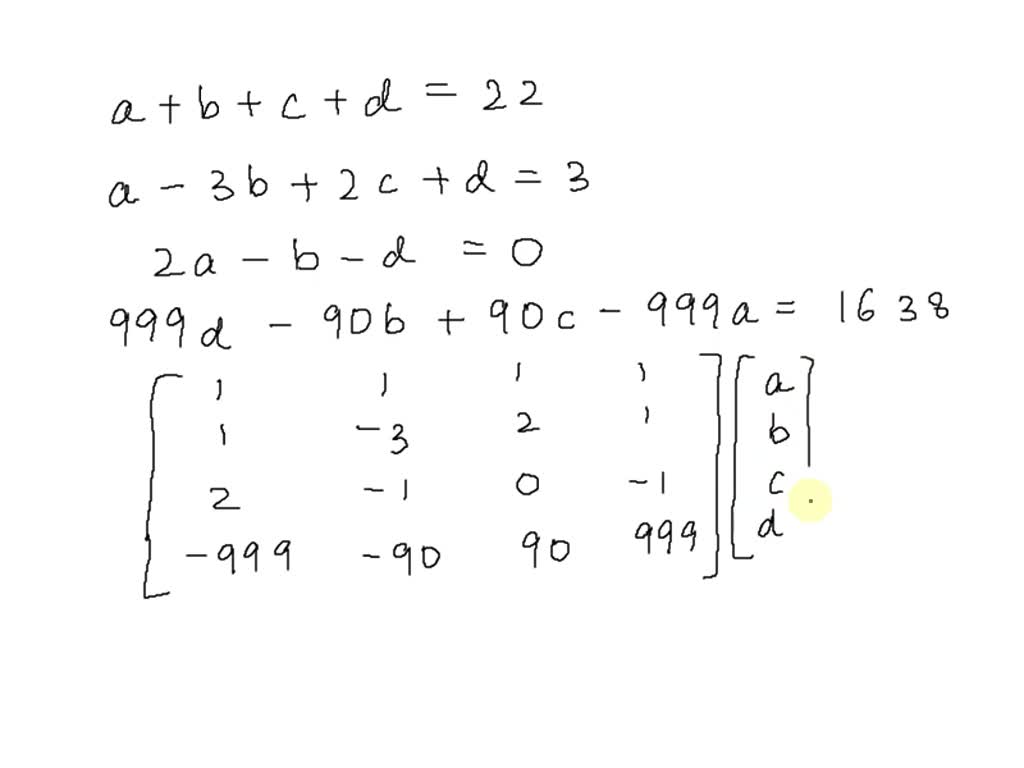 a + b + c + d = 22
a - 3b + 2c + d = 3
2a - b - d = 0
999d - 90b + 90c - 999a = 1638
[ 1 1 1 1 ] [ a ]
1 -3 2 1 b
2 -1 0 -1 c
-999 -90 90 999 d